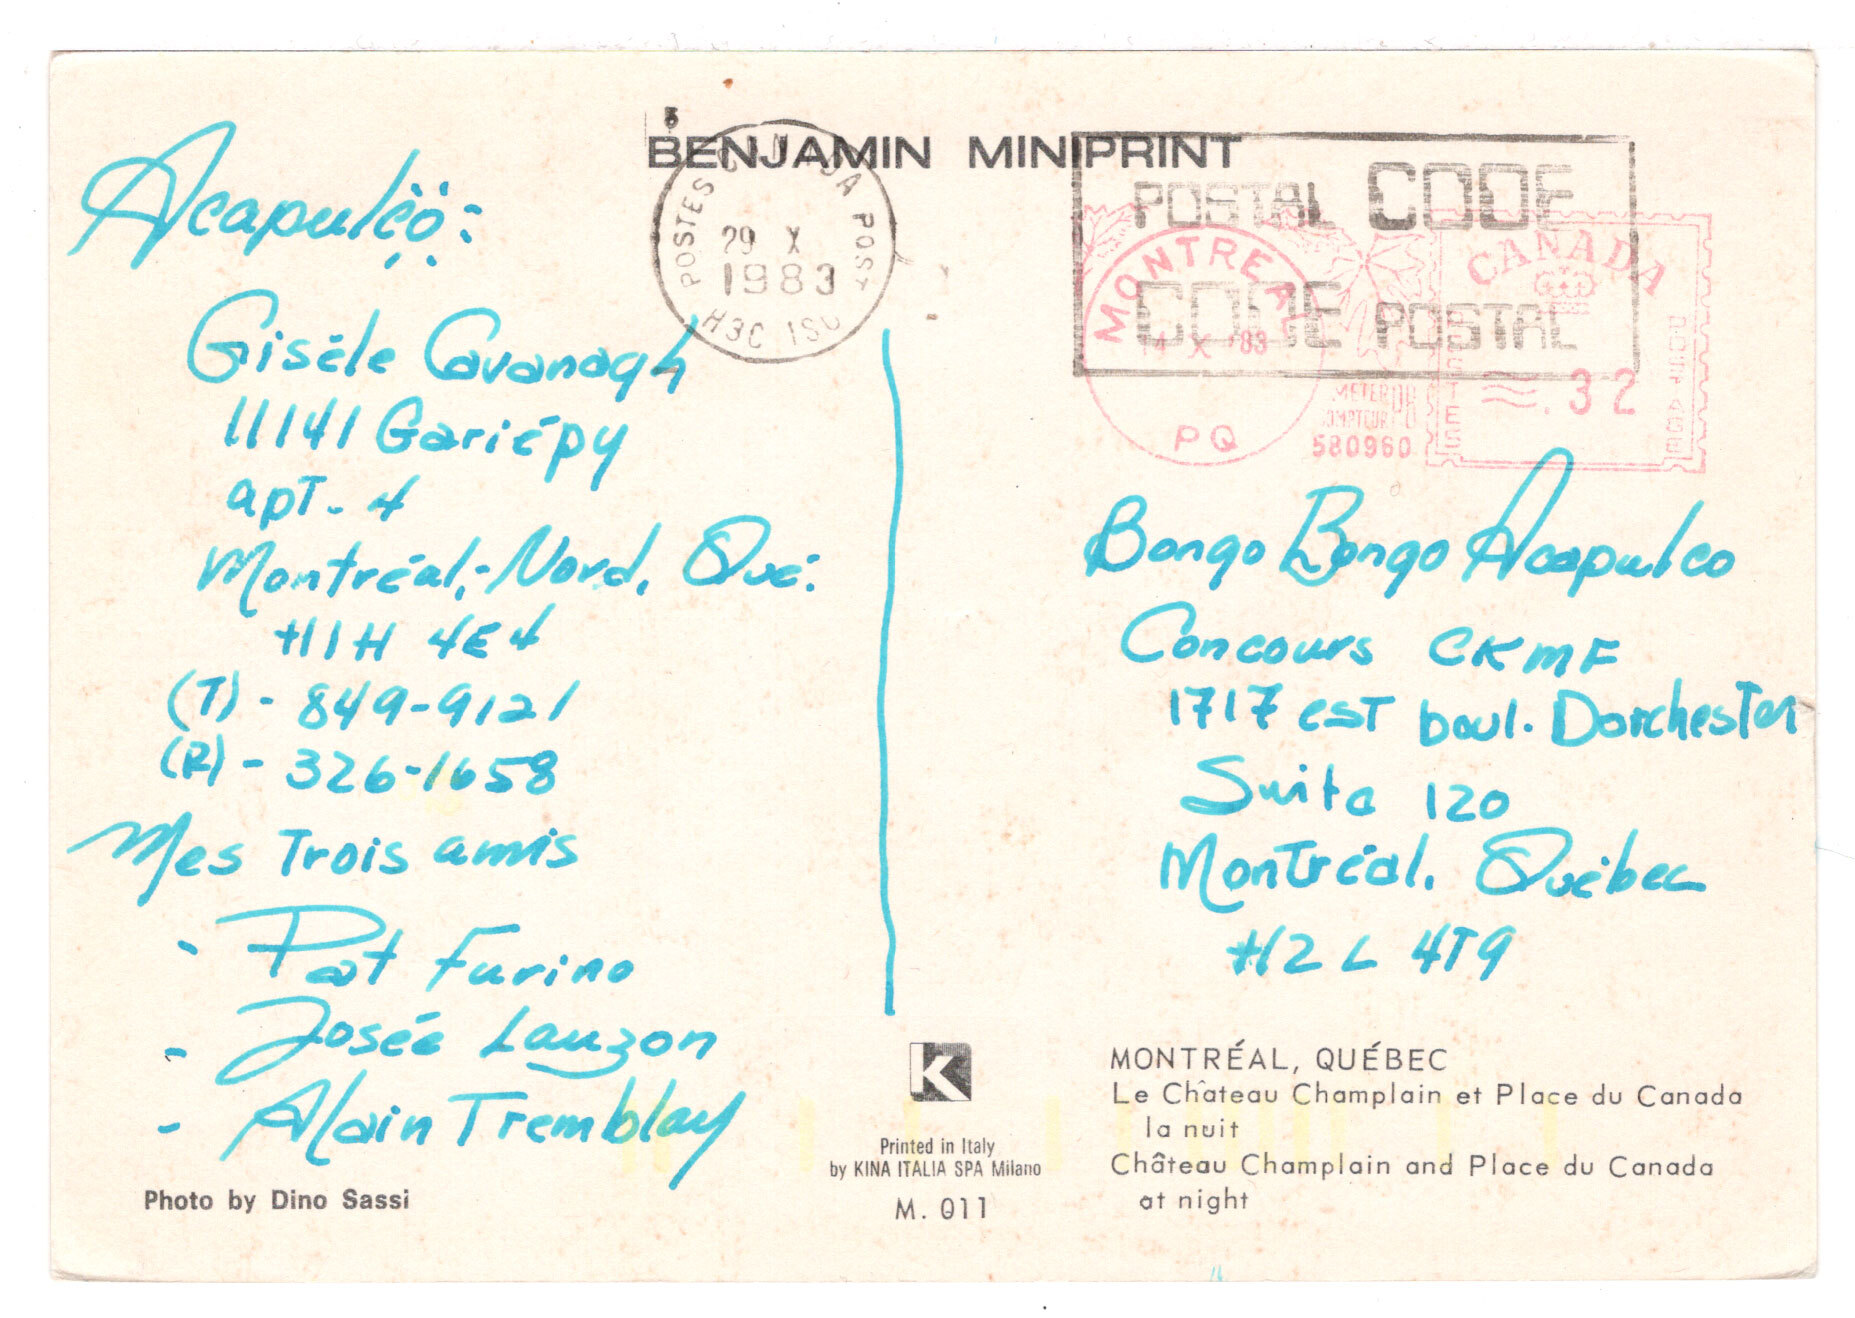 BENJAMIN MINIPRINT
POSTES CANADA POST
29 X
1983
H3C 1S0
POSTAL CODE
CODE POSTAL
MONTREAL
X '83
PQ
METER
COMPTEUR
580960
CANADA
POSTES
POSTAGE
.32
Acapulco:
Gisèle Cavanagh
11141 Gariépy
apt- 4
Montréal,-Nord, Qué.
H1H 4E4
(T) - 849-9121
(R) - 326-1658
Mes Trois amis
- Pat Furino
- Josée Lauzon
- Alain Tremblay
Photo by Dino Sassi
Bongo Bongo Acapulco
Concours CKMF
1717 est boul. Dorchester
Suite 120
Montréal, Québec
H2L 4T9
K
Printed in Italy
by KINA ITALIA SPA Milano
M. 011
MONTRÉAL, QUÉBEC
Le Château Champlain et Place du Canada
la nuit
Château Champlain and Place du Canada
at night